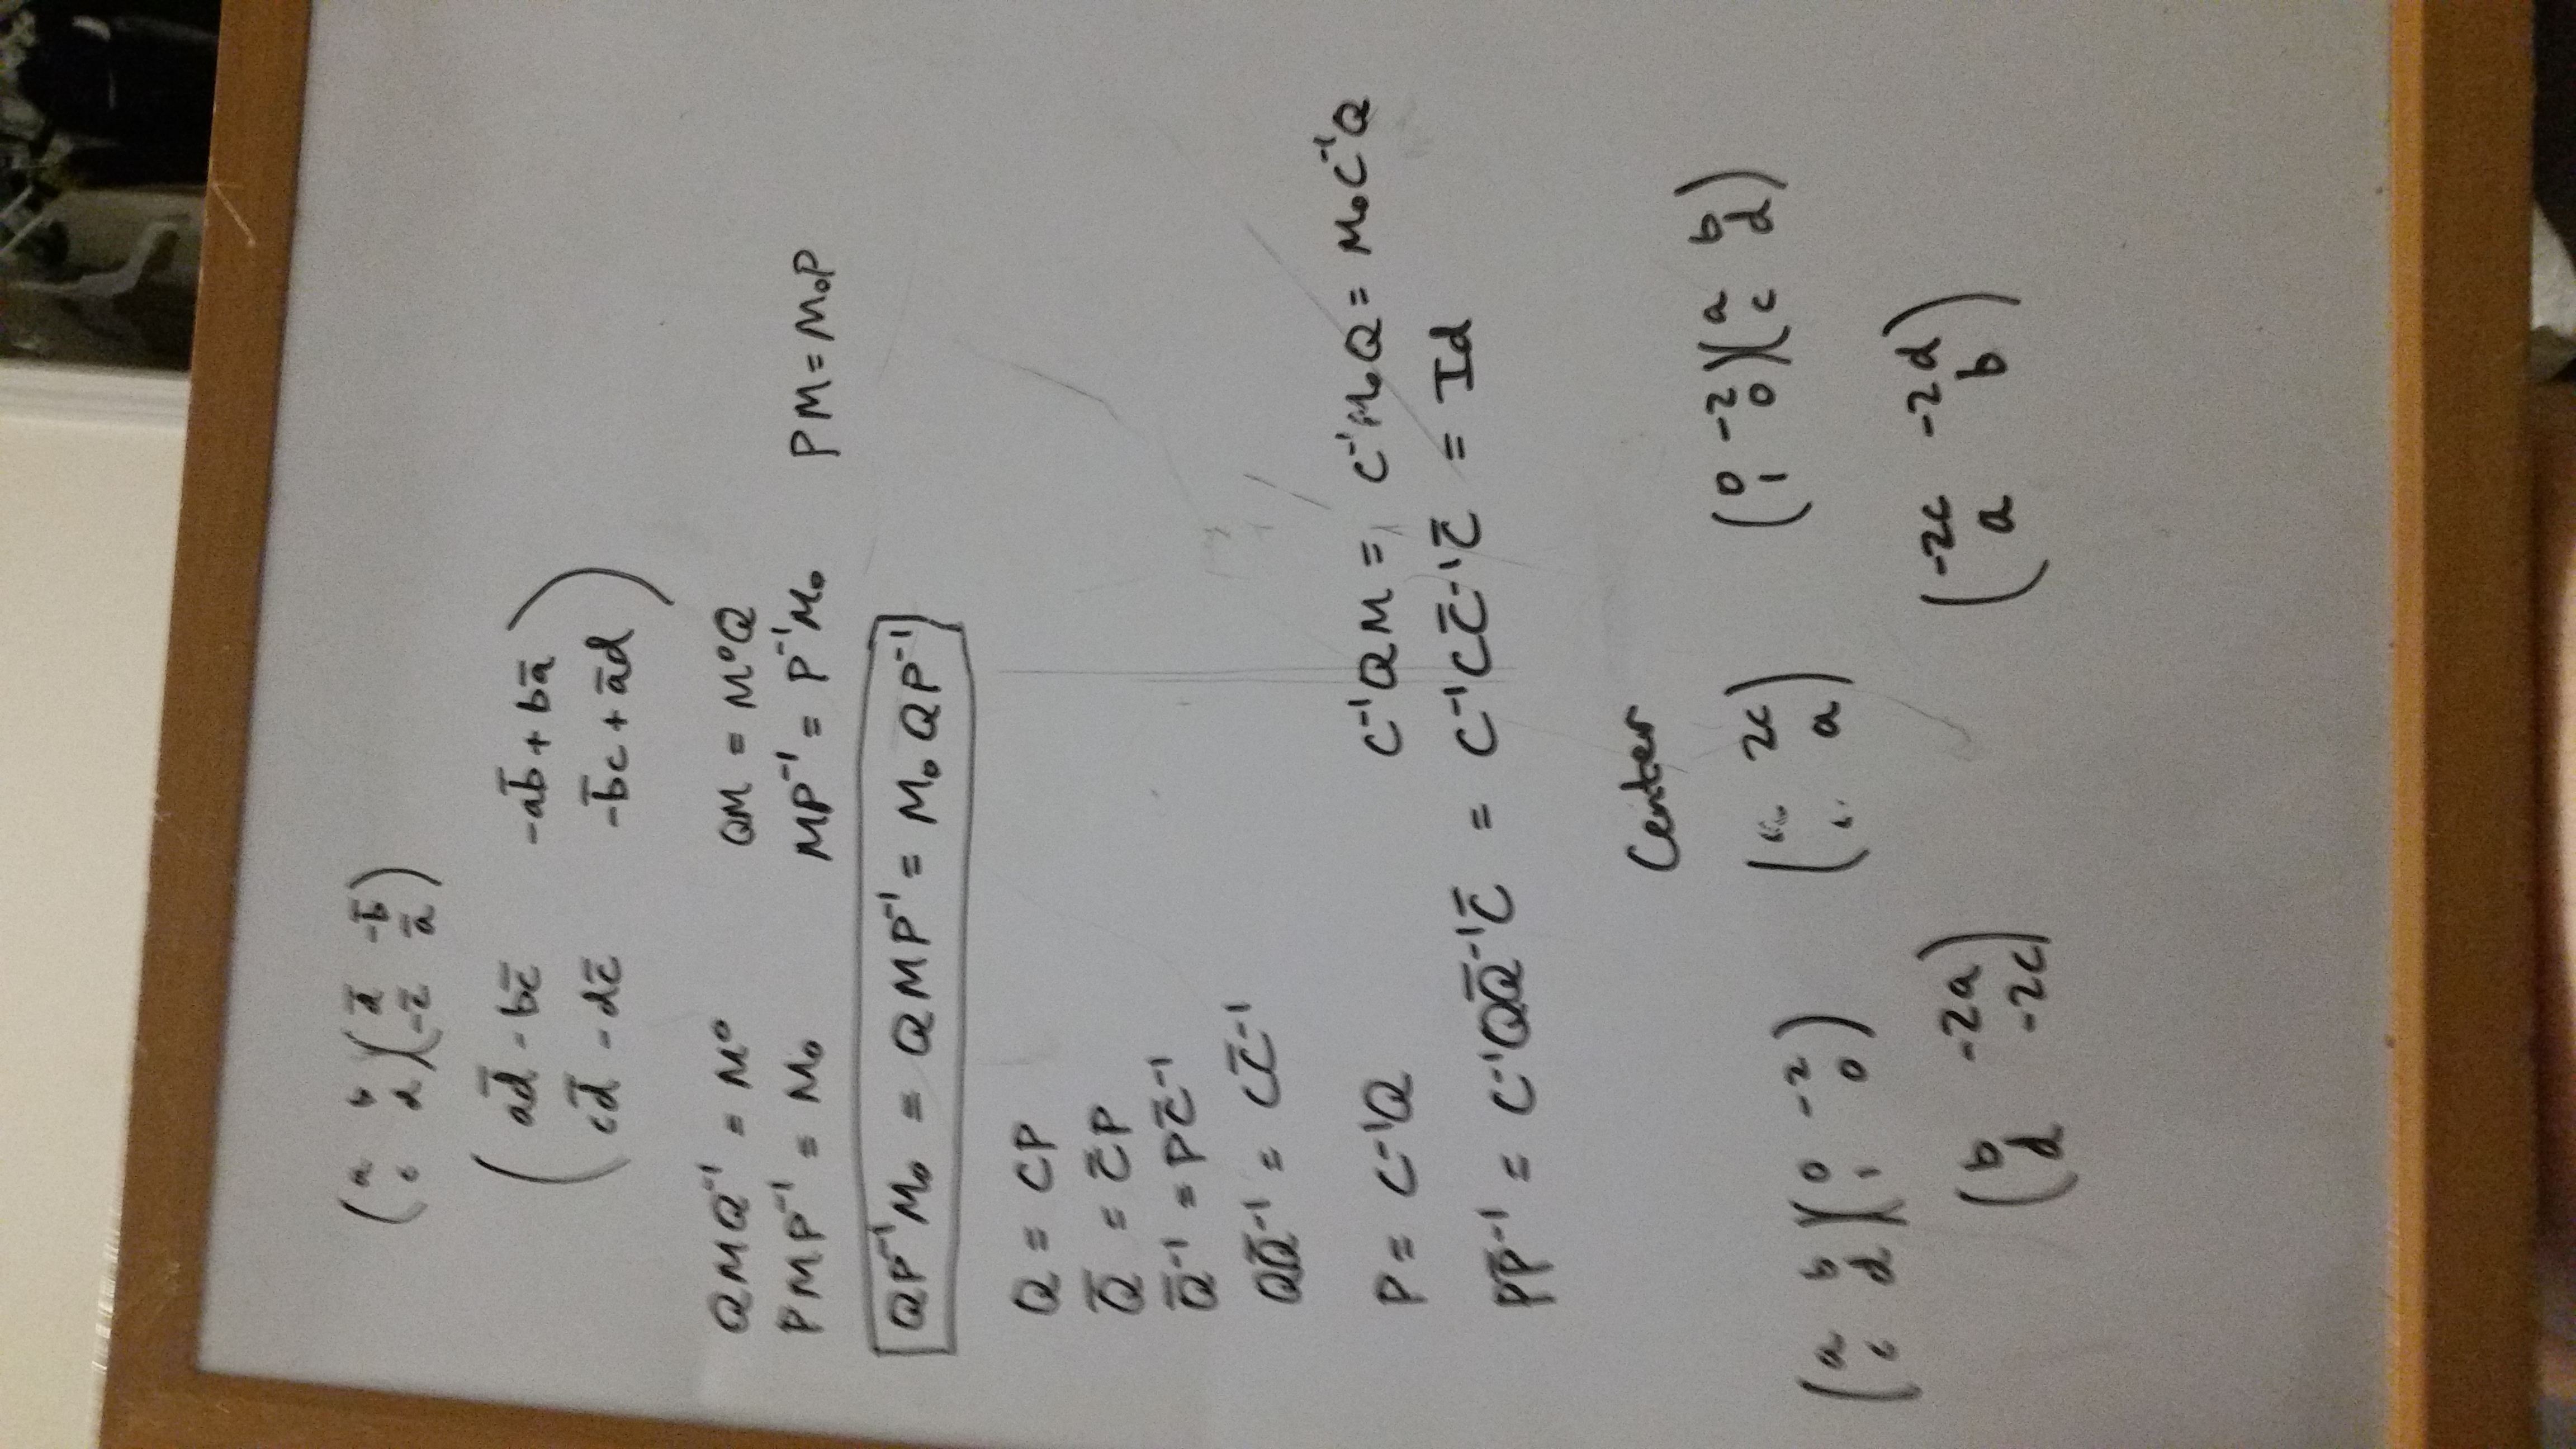 (a b / c d)(d̄ -b̄ / -c̄ ā)
(ad̄ - bc̄ -ab̄ + bā / cd̄ - dc̄ -b̄c + ād)
QMQ⁻¹ = M⁰ QM = M⁰Q
PMP⁻¹ = M₀ MP⁻¹ = P⁻¹M₀ PM = M₀P
QP⁻¹M₀ = QMP⁻¹ = M₀QP⁻¹
Q = CP
Q̄ = C̄P
Q̄⁻¹ = PC̄⁻¹
QQ̄⁻¹ = CC̄⁻¹
P = C⁻¹Q C⁻¹QM = C⁻¹M₀Q = M₀C⁻¹Q
PP̄⁻¹ = C⁻¹QQ̄⁻¹C̄ = C⁻¹CC̄⁻¹C̄ = Id
Center
(a b / c d)(0 -2 / 1 0) ( 2c / a) (0 -2 / 1 0)(a b / c d)
(b -2a / d -2c) (-2c -2d / a b)